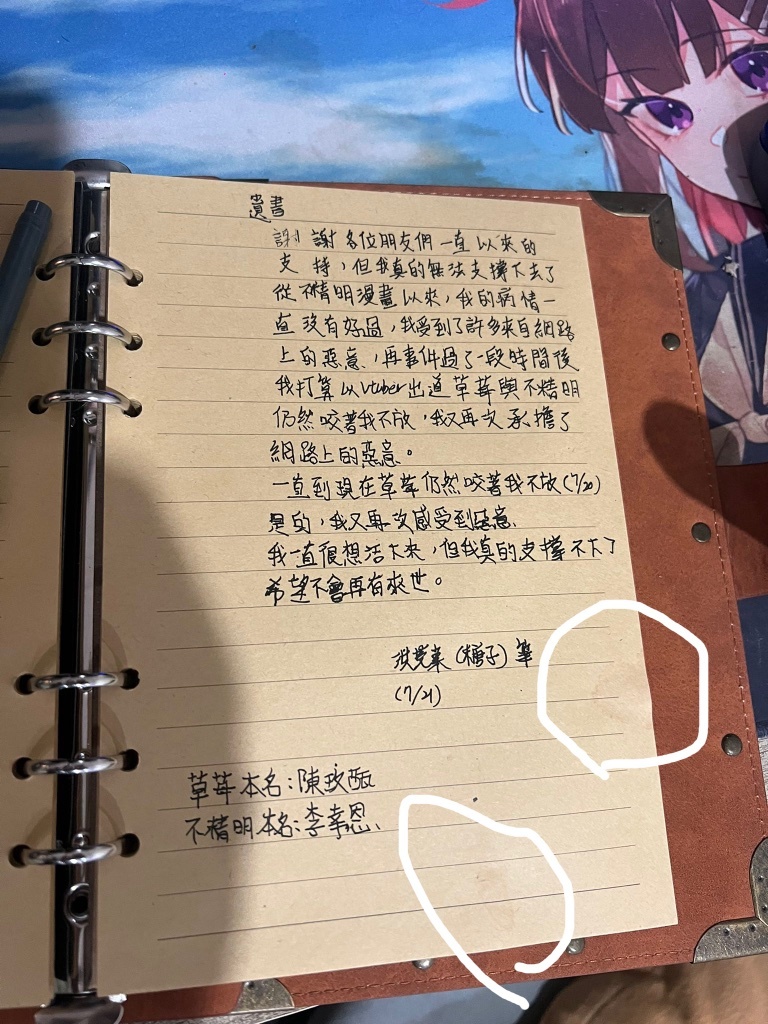 遺書
謝謝各位朋友們一直以來的
支持，但我真的無法支撐下去了
從不精明漫畫以來，我的病情一
直沒有好過，我受到了許多來自網路
上的惡意，再事件過了一段時間後
我打算以vtuber出道草莓與不精明
仍然咬著我不放，我又再次承擔了
網路上的惡意。
一直到現在草莓仍然咬著我不放(7/20)
是的，我又再次感受到惡意.
我一直很想活下來，但我真的支撐不下了
希望不會再有來世。
(種子)筆
(7/21)
草莓本名：陳玫
不精明本名：李幸恩.